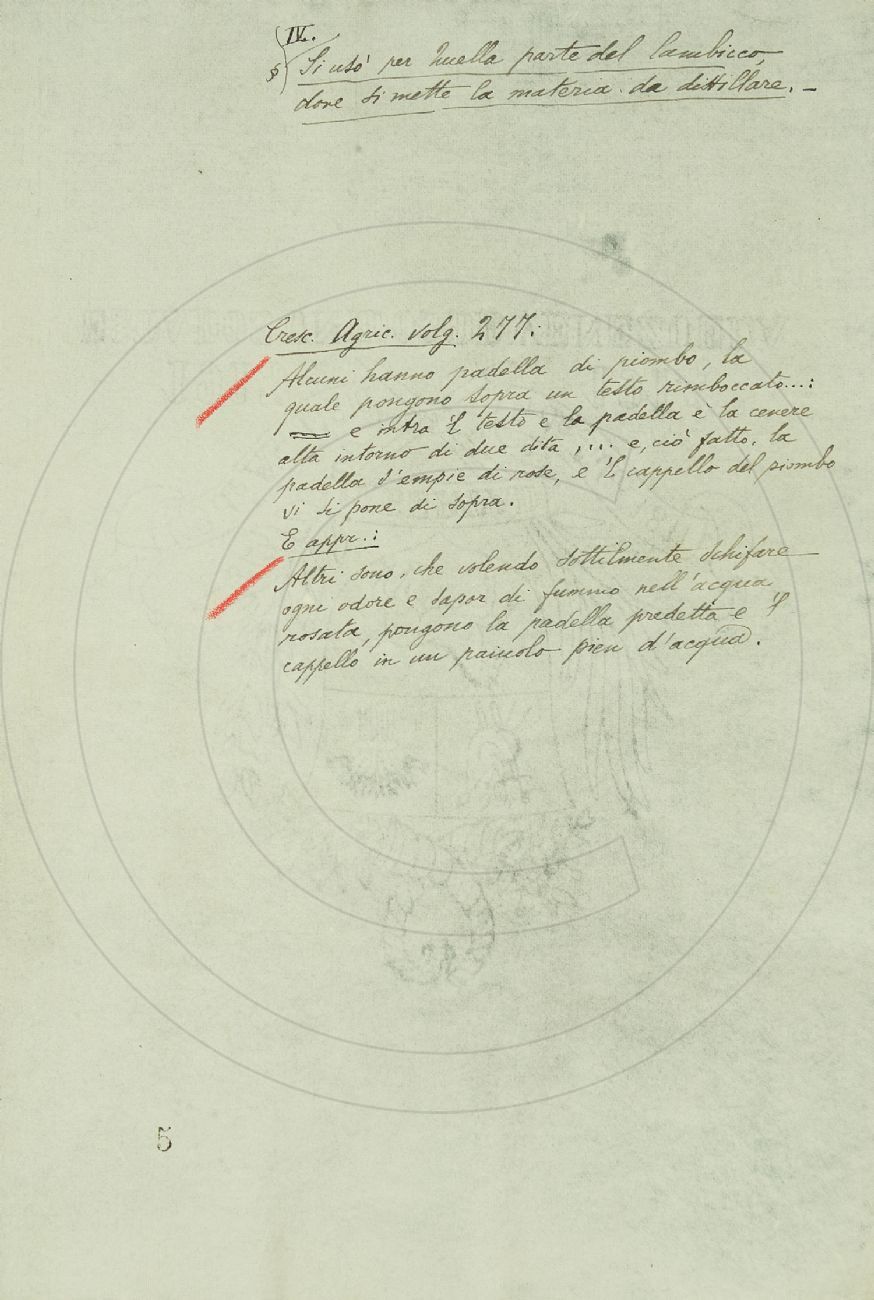 IV.
§ Si usò per Quella parte del lambicco,
dove si mette la materia da distillare. –
Cresc. Agric. volg. 277.:
Alcuni hanno padella di piombo, la
quale pongono sopra un testo rimboccato...:
e intra 'l testo e la padella è la cenere
alta intorno di due dita, ... e, ciò fatto, la
padella s'empie di rose, e 'l cappello del piombo
vi si pone di sopra.
E appr.:
Altri sono, che volendo sottilmente schifare
ogni odore e sapor di fummo nell'acqua
rosata, pongono la padella predetta e 'l
cappello in un paiuolo pien d'acqua.
5